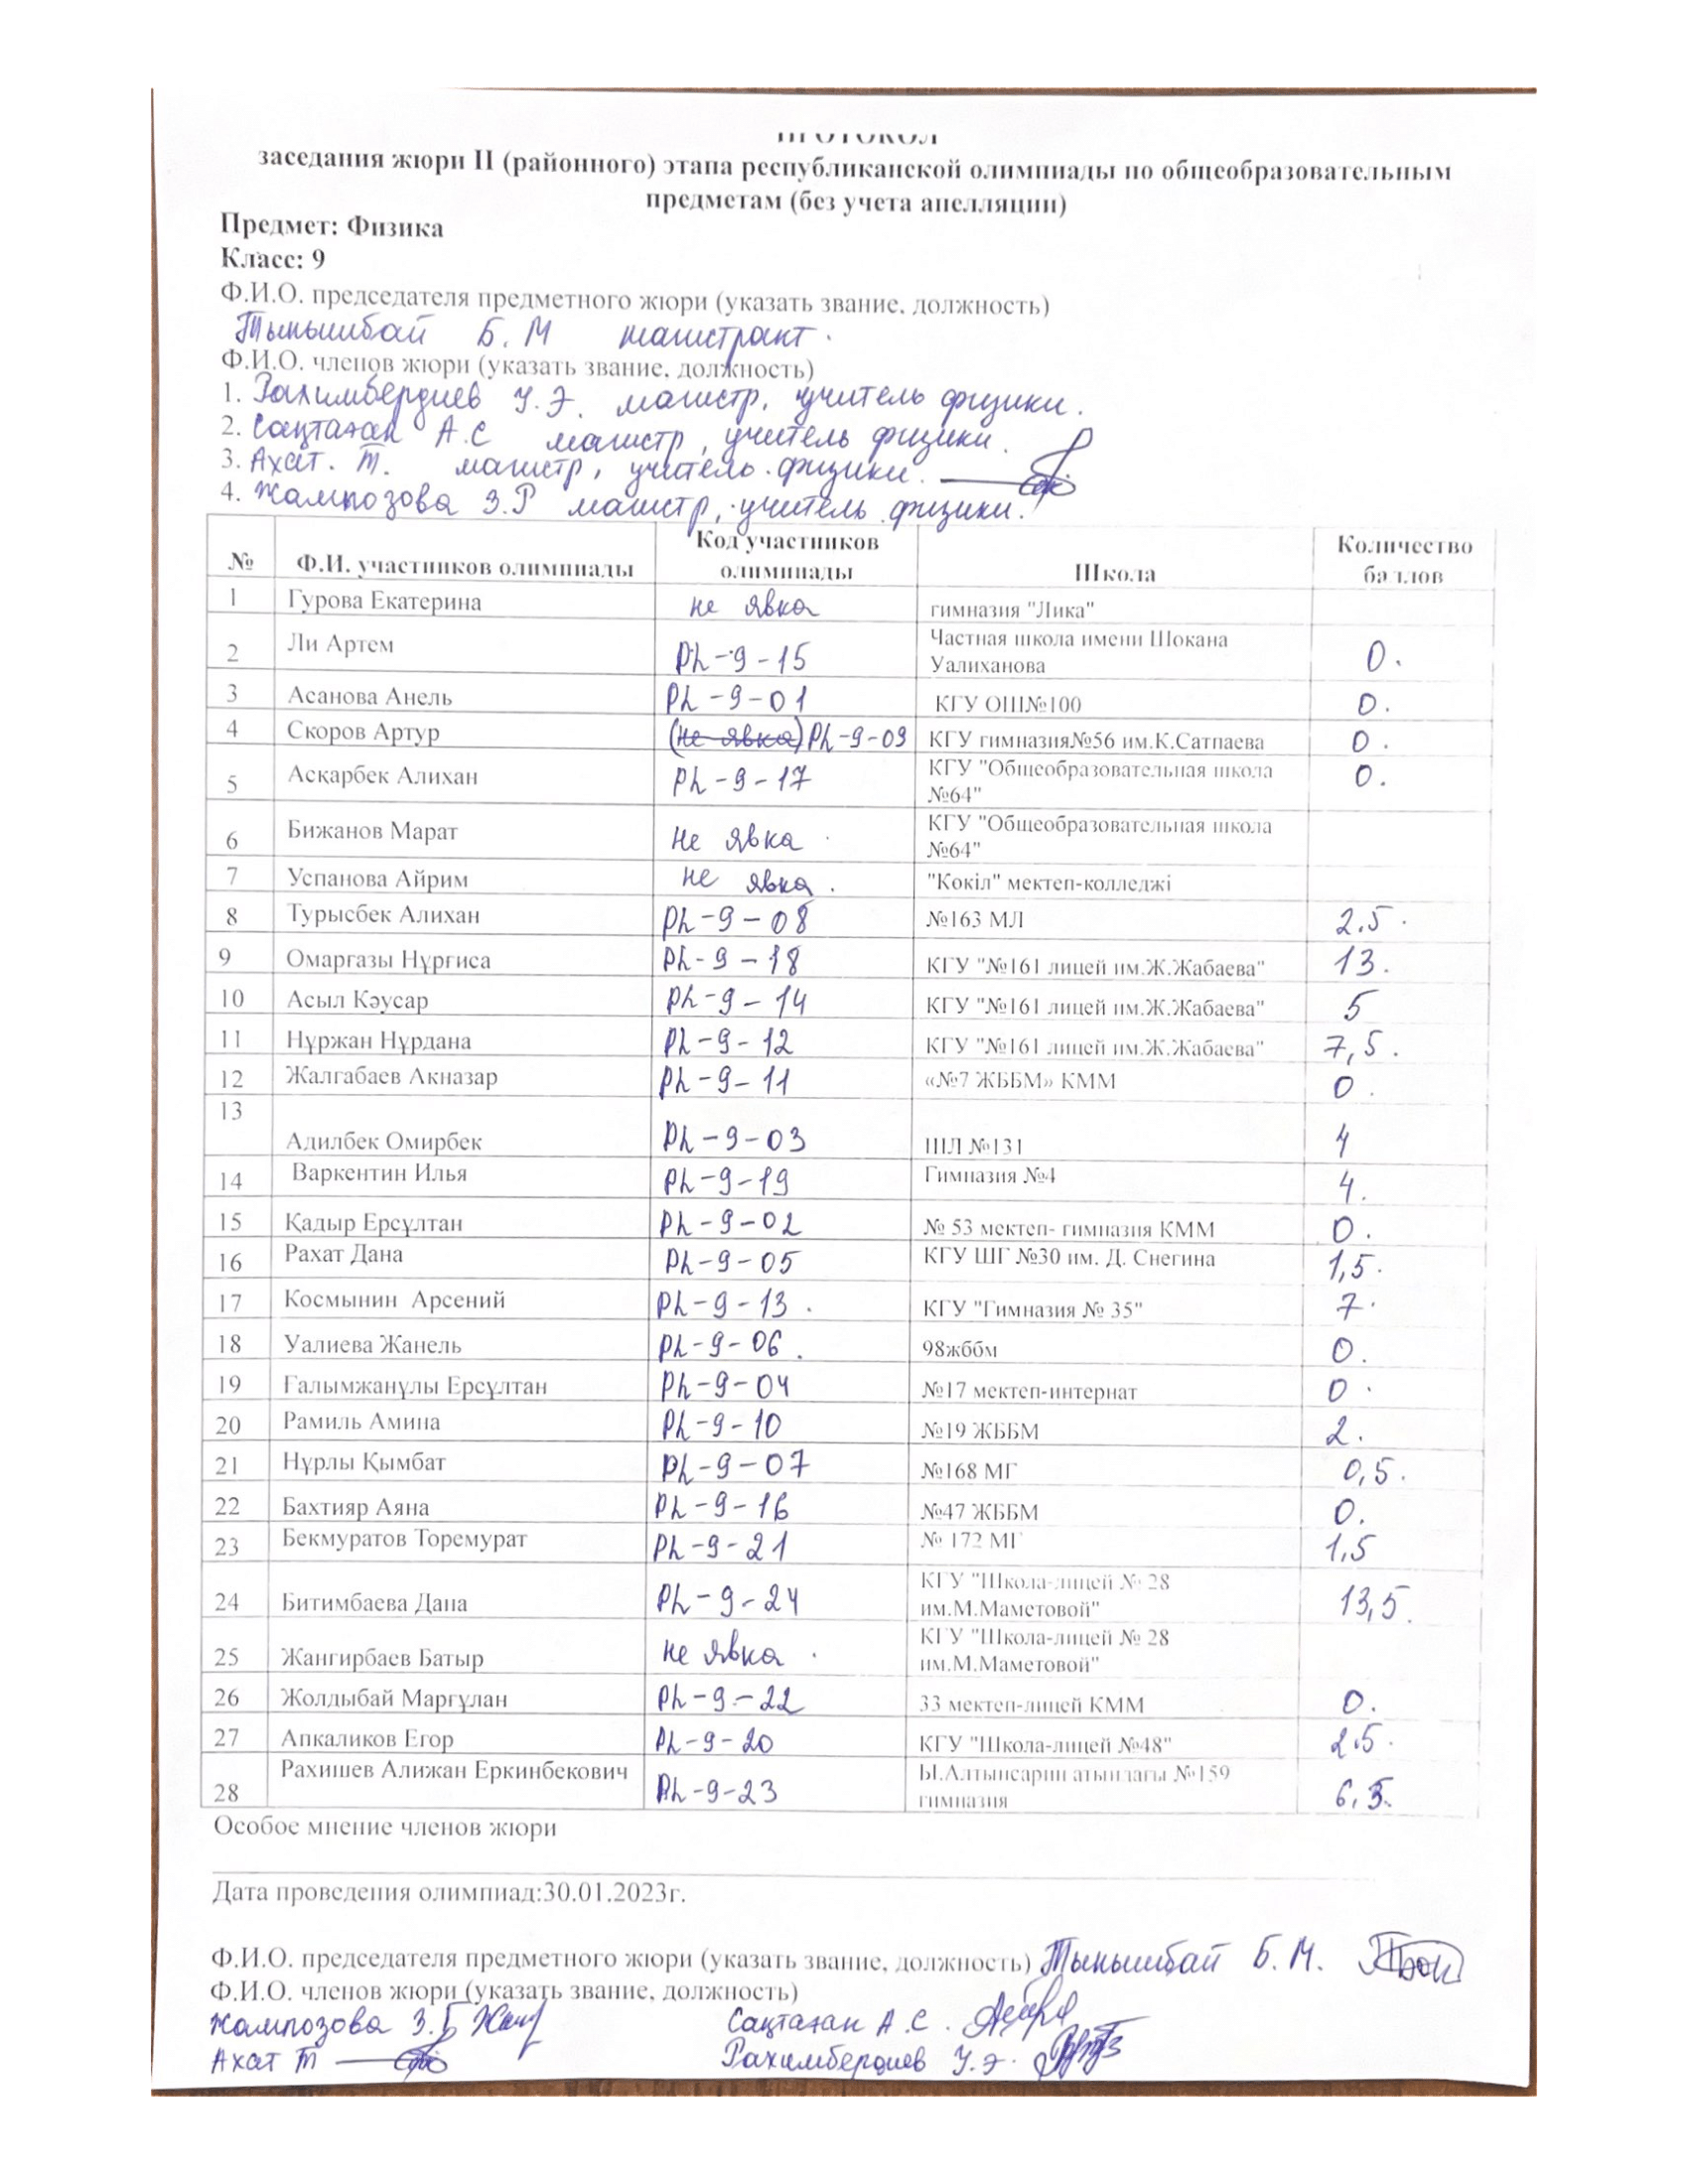 ПРОТОКОЛ
заседания жюри II (районного) этапа республиканской олимпиады по общеобразовательным
предметам (без учета апелляции)
Предмет: Физика
Класс: 9
Ф.И.О. председателя предметного жюри (указать звание, должность)
Тынышбай Б.М магистрант.
Ф.И.О. членов жюри (указать звание, должность)
1. Рахимбердиев У.Э. магистр, учитель физики.
2. Саңтазан А.С магистр, учитель физики.
3. Ахат. Т. магистр, учитель физики.
4. Жампозова З.Р магистр, учитель физики.
№ Ф.И. участников олимпиады Код участников олимпиады Школа Количество баллов
1 Гурова Екатерина не явка гимназия "Лика"
2 Ли Артем Ph-9-15 Частная школа имени Шокана Уалиханова 0.
3 Асанова Анель Ph-9-01 КГУ ОШ№100 0.
4 Скоров Артур (не явка) Ph-9-09 КГУ гимназия№56 им.К.Сатпаева 0.
5 Асқарбек Алихан Ph-9-17 КГУ "Общеобразовательная школа №64" 0.
6 Бижанов Марат не явка КГУ "Общеобразовательная школа №64"
7 Успанова Айрим не явка. "Көкіл" мектеп-колледжі
8 Турысбек Алихан Ph-9-08 №163 МЛ 2.5.
9 Омарғазы Нұрғиса Ph-9-18 КГУ "№161 лицей им.Ж.Жабаева" 13.
10 Асыл Кәусар Ph-9-14 КГУ "№161 лицей им.Ж.Жабаева" 5
11 Нұржан Нұрдана Ph-9-12 КГУ "№161 лицей им.Ж.Жабаева" 7,5.
12 Жалгабаев Акназар Ph-9-11 «№7 ЖББМ» КММ 0.
13 Адилбек Омирбек Ph-9-03 ШЛ №131 4
14 Варкентин Илья Ph-9-19 Гимназия №4 4.
15 Қадыр Ерсұлтан Ph-9-02 № 53 мектеп- гимназия КММ 0.
16 Рахат Дана Ph-9-05 КГУ ШГ №30 им. Д. Снегина 1,5.
17 Космынин Арсений Ph-9-13. КГУ "Гимназия № 35" 7.
18 Уалиева Жанель Ph-9-06. 98жббм 0.
19 Ғалымжанұлы Ерсұлтан Ph-9-04 №17 мектеп-интернат 0.
20 Рамиль Амина Ph-9-10 №19 ЖББМ 2.
21 Нұрлы Қымбат Ph-9-07 №168 МГ 0,5.
22 Бахтияр Аяна Ph-9-16 №47 ЖББМ 0.
23 Бекмуратов Торемурат Ph-9-21 № 172 МГ 1,5
24 Битимбаева Дана Ph-9-24 КГУ "Школа-лицей № 28 им.М.Маметовой" 13,5.
25 Жангирбаев Батыр не явка. КГУ "Школа-лицей № 28 им.М.Маметовой"
26 Жолдыбай Марғұлан Ph-9-22 33 мектеп-лицей КММ 0.
27 Апкаликов Егор Ph-9-20 КГУ "Школа-лицей №48" 2.5.
28 Рахишев Алижан Еркинбекович Ph-9-23 Ы.Алтынсарин атындағы №159 гимназия 6,5.
Особое мнение членов жюри
Дата проведения олимпиад:30.01.2023г.
Ф.И.О. председателя предметного жюри (указать звание, должность) Тынышбай Б.М.
Ф.И.О. членов жюри (указать звание, должность)
Жампозова З. Саңтазан А.С.
Ахат Т Рахимбердиев У.Э.